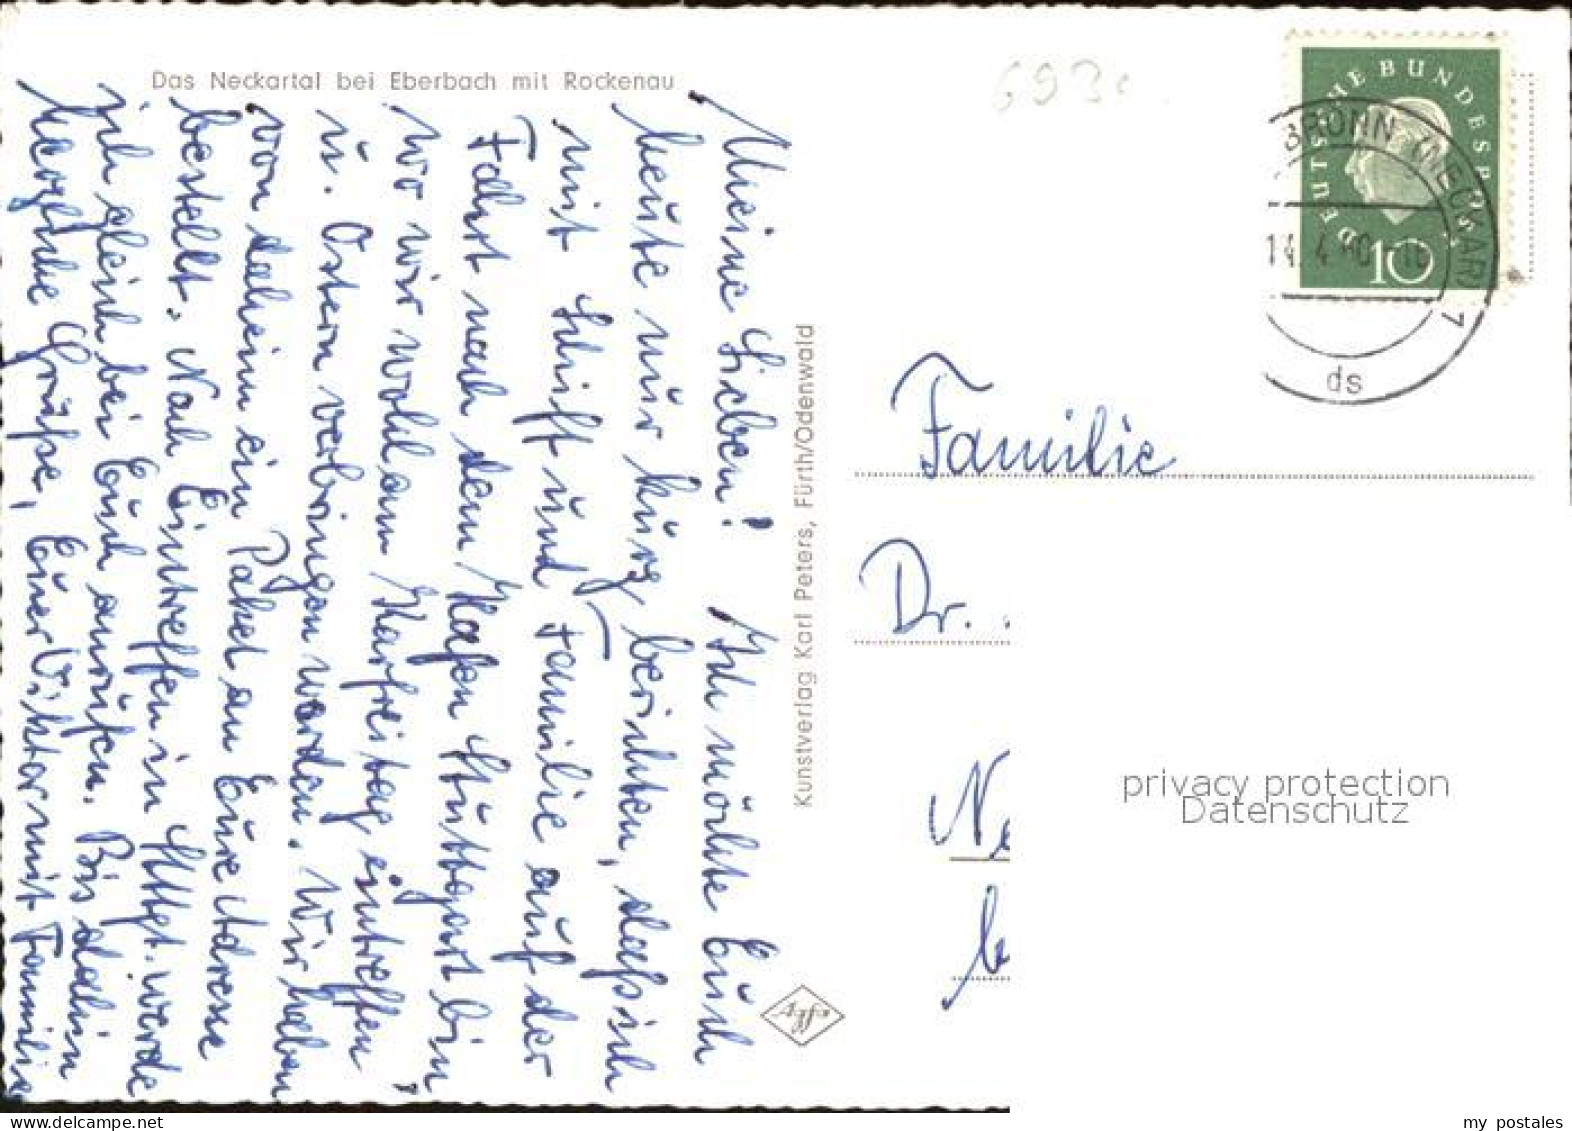 Das Neckartal bei Eberbach mit Rockenau
Meine Lieben! Ich möchte Euch
heute nur kurz berichten, daß ich
mit Schiff und Familie auf der
Fahrt nach dem Hafen Stuttgart bin
wo wir wohl am Karfreitag eintreffen
u. Ostern verbringen werden. Wir haben
von daheim ein Paket an Eure Adresse
bestellt. Nach Eintreffen in Stgt. werde
ich gleich bei Euch anrufen. Bis dahin
herzliche Grüße, Euer Viktor mit Familie
Kunstverlag Karl Peters, Fürth/Odenwald
DEUTSCHE BUNDESPOST
10
BRONN (NECKAR) 7
14.4.60
ds
Familie
Dr.
Ne
privacy protection
Datenschutz
delcampe.net
my postales